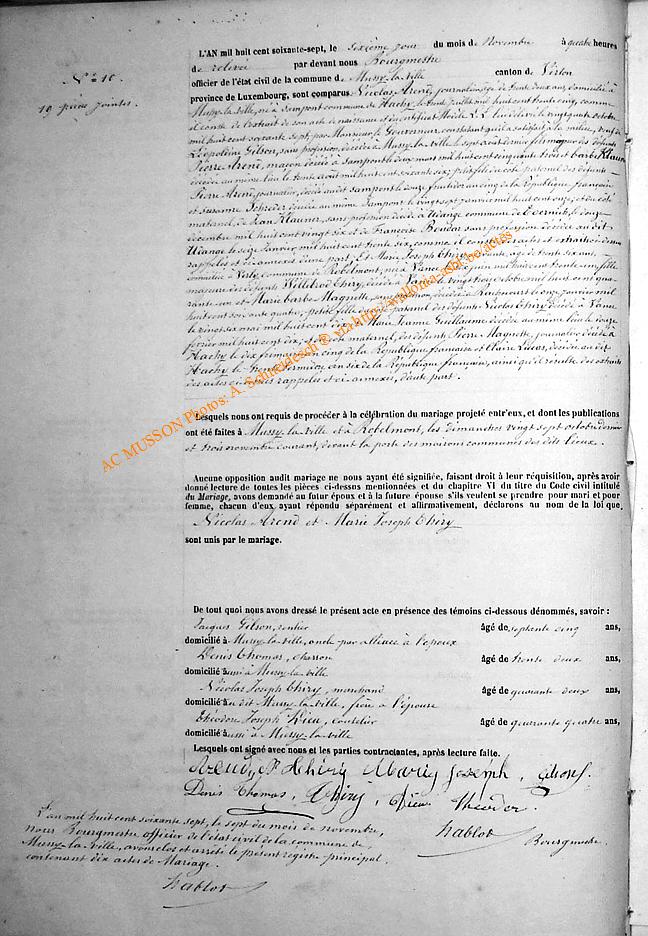 N° 10
19 pièces jointes.
L'AN mil huit cent soixante-sept, le sixième jour du mois de Novembre à quatre heures
de relevée par devant nous Bourgmestre
officier de l'état civil de la commune de Mussy-la-Ville canton de Virton
province de Luxembourg, sont comparus Nicolas Arend, journalier âgé de trente deux ans, domicilié à
Mussy-la-ville, né à Sampont commune de Hachy, le trente juillet mil huit cent trente cinq, comme
il conste de l'extrait de son acte de naissance et du certificat octobre
mil huit cent soixante sept, par Monsieur le Gouverneur, constatant qu'il a satisfait à la milice, veuf de
Léopoldine Gilson, sans profession, décédée à Mussy-la-Ville le sept août dernier, fils des défunts
Pierre Arend, maçon décédé à Sampont le deux mars mil huit cent cinquante trois et Barbe Klauner
décédée au même lieu le trente août mil huit cent soixante six, petit fils du côté paternel des défunts
Pierre Arend, journalier, décédé au dit Sampont le deux an cinq de la République française
et Susanne Schreder décédée au même Sampont le vingt sept janvier mil huit cent onze, et du côté
maternel, de Jean Klauner, sans profession décédé à Udange commune de le douze
décembre mil huit cent vingt six et de Françoise sans profession décédée au dit
Udange le seize Janvier mil huit cent trente six, comme il conste des actes et extraits ci-dessus
rappelés et ci-annexés d'une part; Et Marie Joseph Thiry âgée de trente six ans,
domiciliée à commune de Robelmont, née à Vance juin mil huit cent trente un, fille
majeure des défunts Willebrod Thiry, décédé à Vance le vingt trois octobre mil huit cent
rante un et Marie barbe Magnette, sans profession, décédée à le onze janvier mil
huit cent soixante quatre, petite fille du côté paternel des défunts Nicolas Thiry décédé à Vance
le vingt six mai mil huit cent et Marie Jeanne Guillaume décédée au même lieu le douze
février mil huit cent dix, et du côté maternel, des défunts Pierre Magnette, journalier décédé à
Hachy le dix frimaire an cinq de la République française et Claire Lucas, décédée au dit
Hachy le fructidor an six de la République française, ainsi qu'il résulte des extraits
des actes ci-dessus rappelés et ci-annexés, d'autre part.
Lesquels nous ont requis de procéder à la célébration du mariage projeté entr'eux, et dont les publications
ont été faites à Mussy-la-ville et à Robelmont, les dimanches vingt sept octobre dernier
et trois novembre courant, devant la porte des maisons communes des dits lieux.
Aucune opposition audit mariage ne nous ayant été signifiée, faisant droit à leur réquisition, après avoir
donné lecture de toutes les pièces ci-dessus mentionnées et du chapitre VI du titre du Code civil intitulé
du Mariage, avons demandé au futur époux et à la future épouse s'ils veulent se prendre pour mari et pour
femme, chacun d'eux ayant répondu séparément et affirmativement, déclarons au nom de la loi que,
Nicolas Arend et Marie Joseph Thiry
sont unis par le mariage.
De tout quoi nous avons dressé le présent acte en présence des témoins ci-dessous dénommés, savoir :
Jacques Gilson, rentier âgé de septante cinq ans,
domicilié à Mussy-la-ville, oncle par alliance à l'époux
Denis Thomas, charron âgé de trente deux ans,
domicilié aussi à Mussy-la-ville
Nicolas Joseph Thiry, marchand âgé de quarante deux ans,
domicilié au dit Mussy-la-ville, frère à l'épouse
Théodore Joseph Dieu, coutelier âgé de quarante quatre ans,
domicilié aussi à Mussy-la-ville
Lesquels ont signé avec nous et les parties contractantes, après lecture faite.
Arend, N Thiry Marie Joseph, Gilson J.
Denis Thomas, Thiry, Dieu Theodor.
Hablot Bourgmestre.
L'an mil huit cent soixante sept, le sept du mois de novembre,
Nous Bourgmestre officier de l'état civil de la commune de
Mussy-la-ville, avons clos et arrêté le présent registre principal
contenant dix actes de Mariage.
Hablot
AC MUSSON Photos: A. Schneidesch ® via http://wallonia-asbl.be/actes